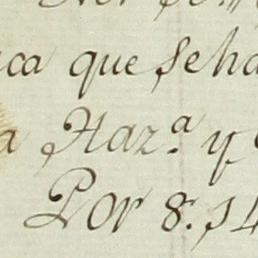 ca que se ha
a Haz.ª y
Por 8.